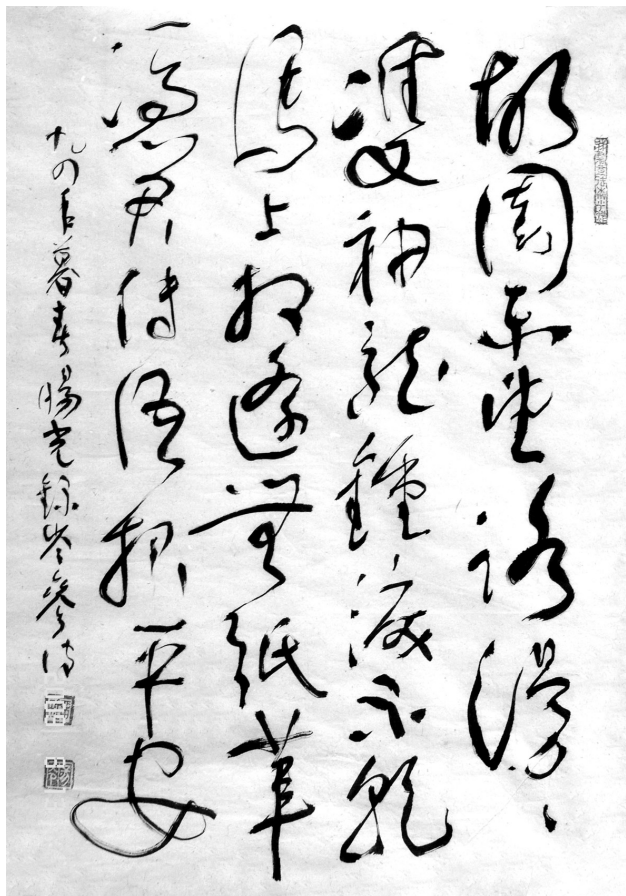 故園東望路漫々
雙袖龍鍾淚不乾
馬上相逢無紙筆
憑君傳語報平安
九四年暮春錄岑參詩